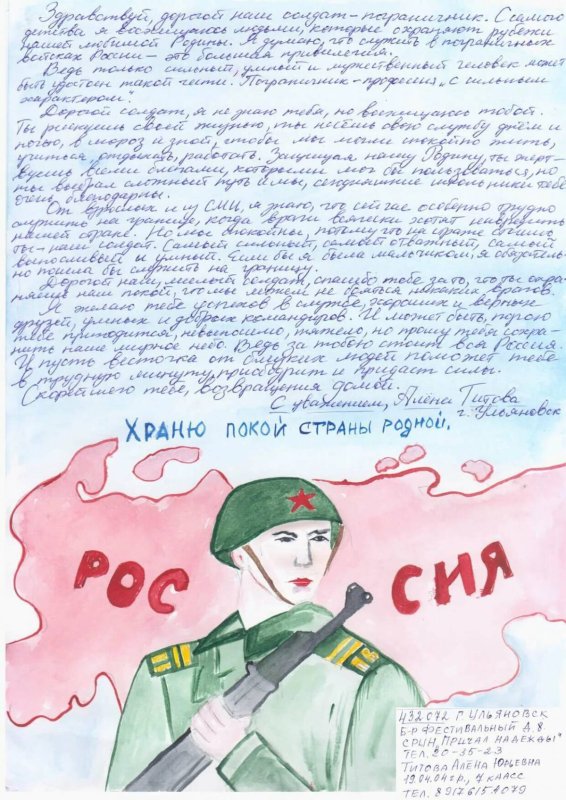 Здравствуй, дорогой наш солдат-пограничник. С самого
детства я восхищаюсь людьми, которые охраняют рубежи
нашей любимой Родины. Я думаю, что служить в пограничных
войсках России - это большая привилегия.
Ведь только сильный, умный и мужественный человек может
быть удостоен такой чести. Пограничник - профессия „с сильным
характером".
Дорогой солдат, я не знаю тебя, но восхищаюсь тобой.
Ты рискуешь своей жизнью, ты несёшь свою службу днём и
ночью, в мороз и зной, чтобы мы могли спокойно жить,
учиться, отдыхать, работать. Защищая нашу Родину, ты жерт-
вуешь всеми благами, которыми мог бы пользоваться, но
ты выбрал сложный путь и мы, сегодняшние школьники тебе
очень благодарны.
От взрослых и из СМИ, я знаю, что сейчас особенно трудно
служить на границе, когда враги всячески хотят навредить
нашей стране. Но мы спокойны, потому что на страже стоишь
ты - наш солдат. Самый сильный, самый отважный, самый
выносливый и умный. Если бы я была мальчиком, я обязатель-
но пошла бы служить на границу.
Дорогой наш, милый солдат, спасибо тебе за то, что ты охра-
няешь наш покой, что мы можем не бояться никаких врагов.
Я желаю тебе успехов в службе, хороших и верных
друзей, умных и добрых командиров. И может быть, порою
тебе приходится невыносимо, тяжело, но прошу тебя сохра-
нить наше мирное небо. Ведь за тобою стоит вся Россия.
И пусть весточка от близких людей поможет тебе
в трудную минуту, приободрит и придаст силы.
Скорейшего тебе, возвращения домой.
С уважением, Алёна Титова
г. Ульяновск
Храню покой страны родной.
РОССИЯ
432072 г. Ульяновск
б-р Фестивальный д. 8
СРЦН „Причал надежды"
тел. 20-35-23
Титова Алёна Юрьевна
19.04.04 г.р., 7 класс
тел. 89176154079